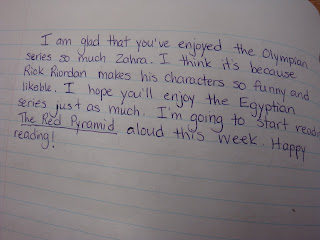 I am glad that you've enjoyed the Olympian
series so much Zahra. I think it's because
Rick Riordan makes his characters so funny and
likeble. I hope you'll enjoy the Egyptian
series just as much. I'm going to start read
The Red Pyramid aloud this week. Happy
reading!